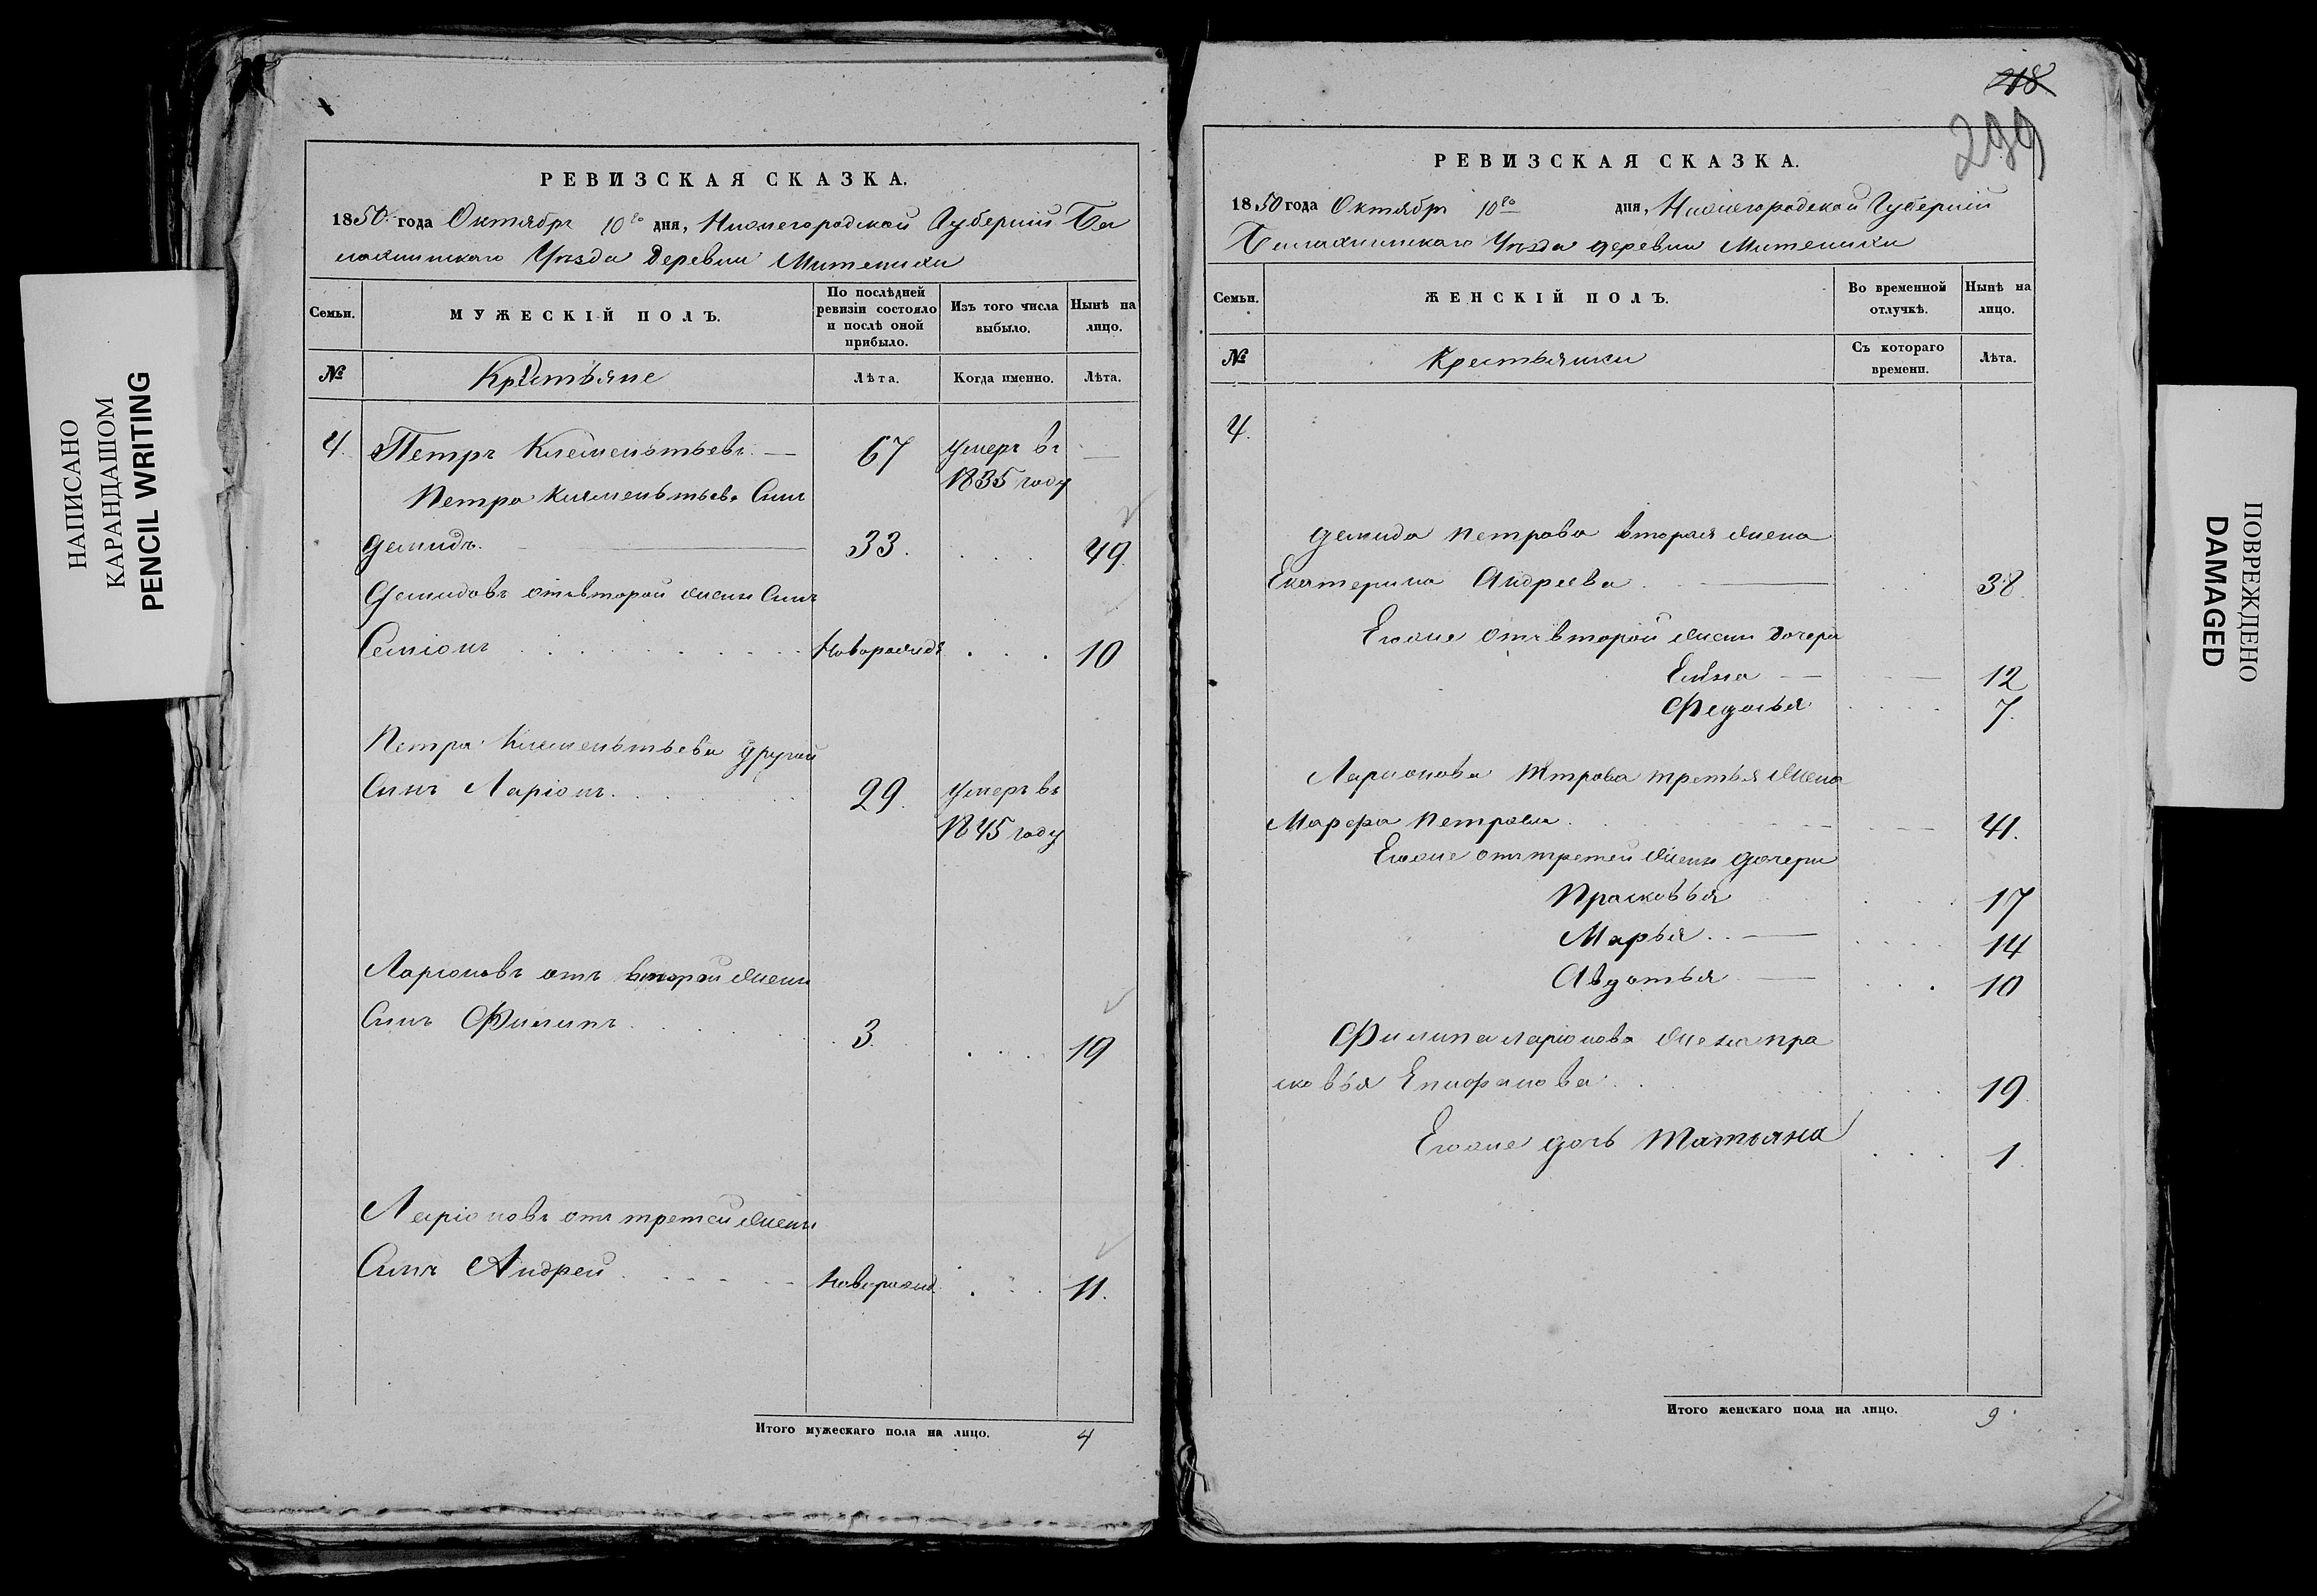 НАПИСАНО
КАРАНДАШОМ
PENCIL WRITING
РЕВИЗСКАЯ СКАЗКА.
1850 года Октября 10го дня, Нижегородской Губернии Ба
лахнинскаго Уезда Деревни Митенихи
Семьи.
МУЖЕСКІЙ ПОЛЪ.
По послѣдней ревизіи состояло и послѣ оной прибыло.
Изъ того числа выбыло.
Нынѣ на лицо.
№
Крестьяне
Лѣта.
Когда именно.
Лѣта.
4. Петръ Клементьевъ — 67 умеръ въ —
1835 году
Петра Клементьева Сынъ
Демидъ. 33. 49.
Демидовъ отъ второй жены Сынъ
Семіонъ Новорожде 10
Петра Клементьева другой
Сынъ Ларіонъ. 29. умеръ въ
1845 году
Ларіоновъ отъ второй жены
Сынъ Филипъ 3. 19
Ларіоновъ отъ третей жены
Сынъ Андрей Новорожд. 11.
Итого мужескаго пола на лицо. 4
218
299
РЕВИЗСКАЯ СКАЗКА.
1850 года Октября 10го дня, Нижегородской Губерніи
Балахнинскаго Уезда деревни Митенихи
Семьи.
ЖЕНСКІЙ ПОЛЪ.
Во временной отлучкѣ.
Нынѣ на лицо.
№
Крестьянки
Съ котораго времени.
Лѣта.
4.
Демида Петрова вторая жена
Екатерина Андреева. 38.
Егоже отъ второй жены дочери
Елена 12
Федосья 7.
Ларионова Петрова третья жена
Марфа Петрова. 41.
Егоже отъ третей жены дочери
Прасковья 17
Марья. 14
Авдотья 10
Филипа Ларіонова жена Пра
сковья Епифанова. 19.
Егоже дочь Татьяна 1.
Итого женскаго пола на лицо. 9.
ПОВРЕЖДЕНО
DAMAGED